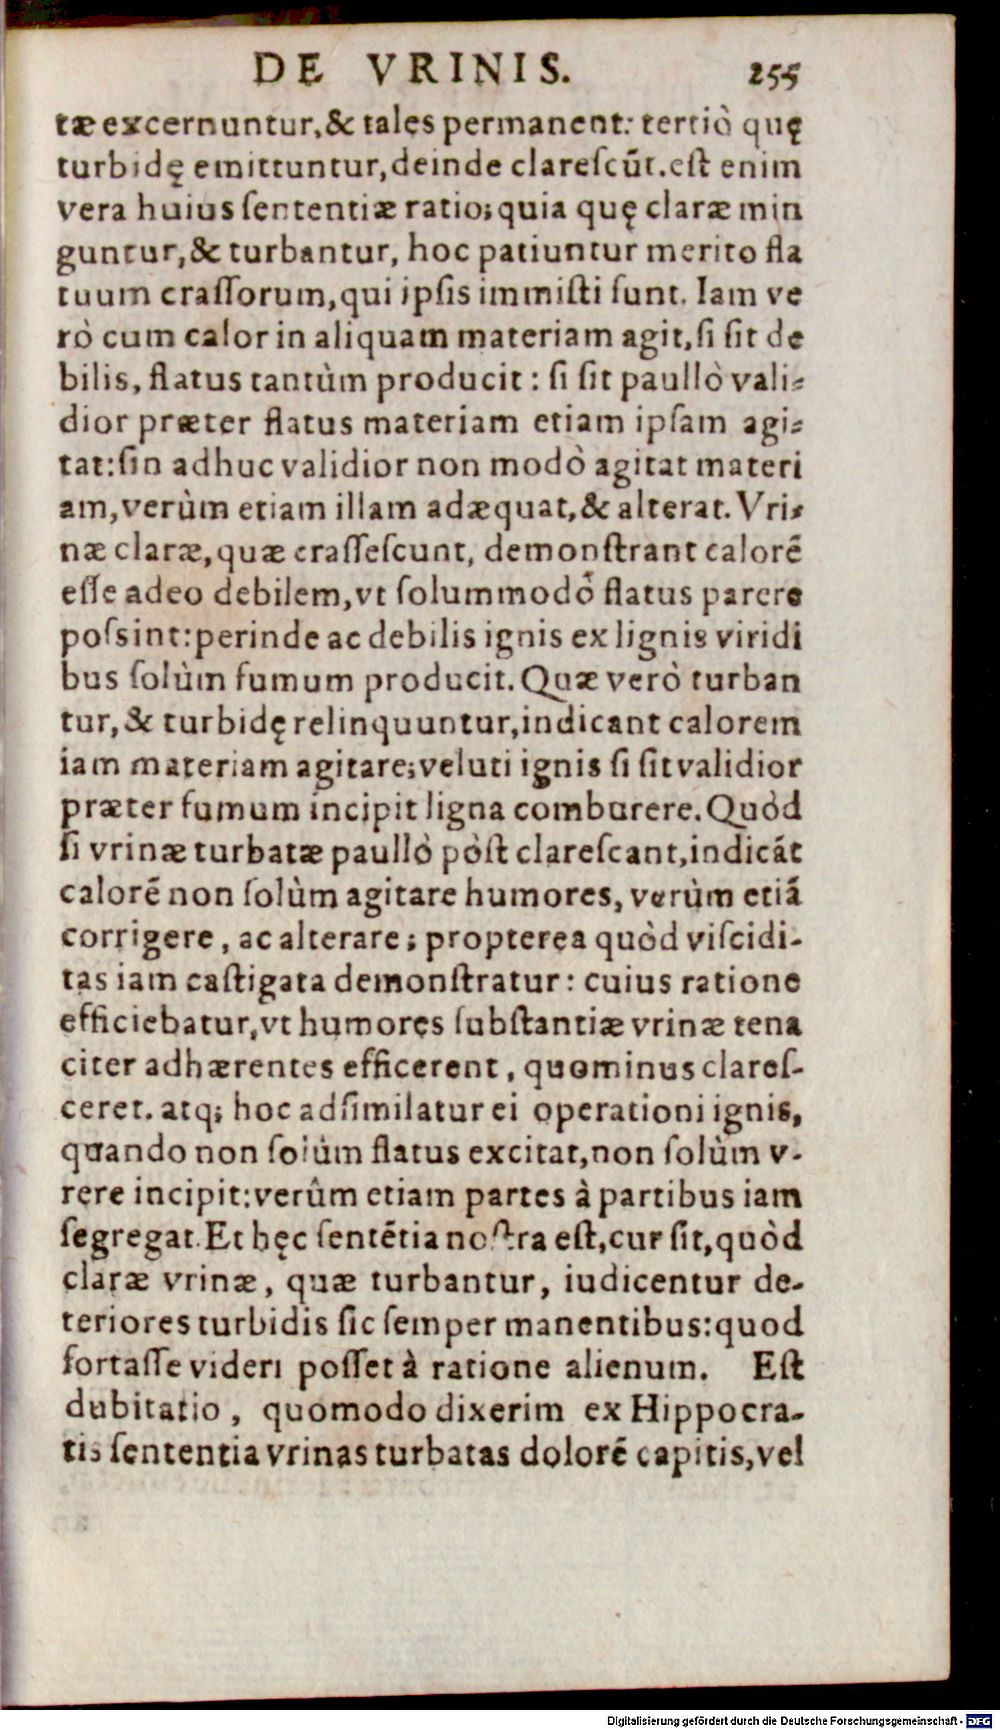 DE VRINIS. 255
tæ excernuntur,& tales permanent: tertiò quę
turbidę emittuntur,deinde clareſcūt.eſt enim
vera huius ſententiæ ratio;quia quę claræ min
guntur,& turbantur, hoc patiuntur merito fla
tuum craſſorum,qui ipſis immiſti ſunt. Iam ve
rò cum calor in aliquam materiam agit,ſi ſit de
bilis, flatus tantùm producit : ſi ſit paullò vali-
dior præter flatus materiam etiam ipſam agi-
tat:ſin adhuc validior non modò agitat materi
am,verùm etiam illam adæquat,& alterat. Vri-
næ claræ,quæ craſſeſcunt, demonſtrant calorē
eſſe adeo debilem,vt ſolummodò flatus parere
poſsint:perinde ac debilis ignis ex lignis viridi
bus ſolùm fumum producit. Quæ verò turban
tur,& turbidę relinquuntur,indicant calorem
iam materiam agitare;veluti ignis ſi ſit validior
præter fumum incipit ligna comburere. Quòd
ſi vrinæ turbatæ paullò pòſt clareſcant,indicāt
calorē non ſolùm agitare humores, verùm etiā
corrigere , ac alterare ; propterea quòd viſcidi-
tas iam caſtigata demonſtratur : cuius ratione
efficiebatur,vt humores ſubſtantiæ vrinæ tena
citer adhærentes efficerent , quominus clareſ-
ceret. atq; hoc adſimilatur ei operationi ignis,
quando non ſolùm flatus excitat,non ſolùm v-
rere incipit:verûm etiam partes à partibus iam
ſegregat. Et hęc ſentētia noſtra eſt,cur ſit,quòd
claræ vrinæ , quæ turbantur, iudicentur de-
teriores turbidis ſic ſemper manentibus:quod
fortaſſe videri poſſet à ratione alienum. Eſt
dubitatio , quomodo dixerim ex Hippocra-
tis ſententia vrinas turbatas dolorē capitis,vel
Digitalisierung gefördert durch die Deutsche Forschungsgemeinschaft - DFG